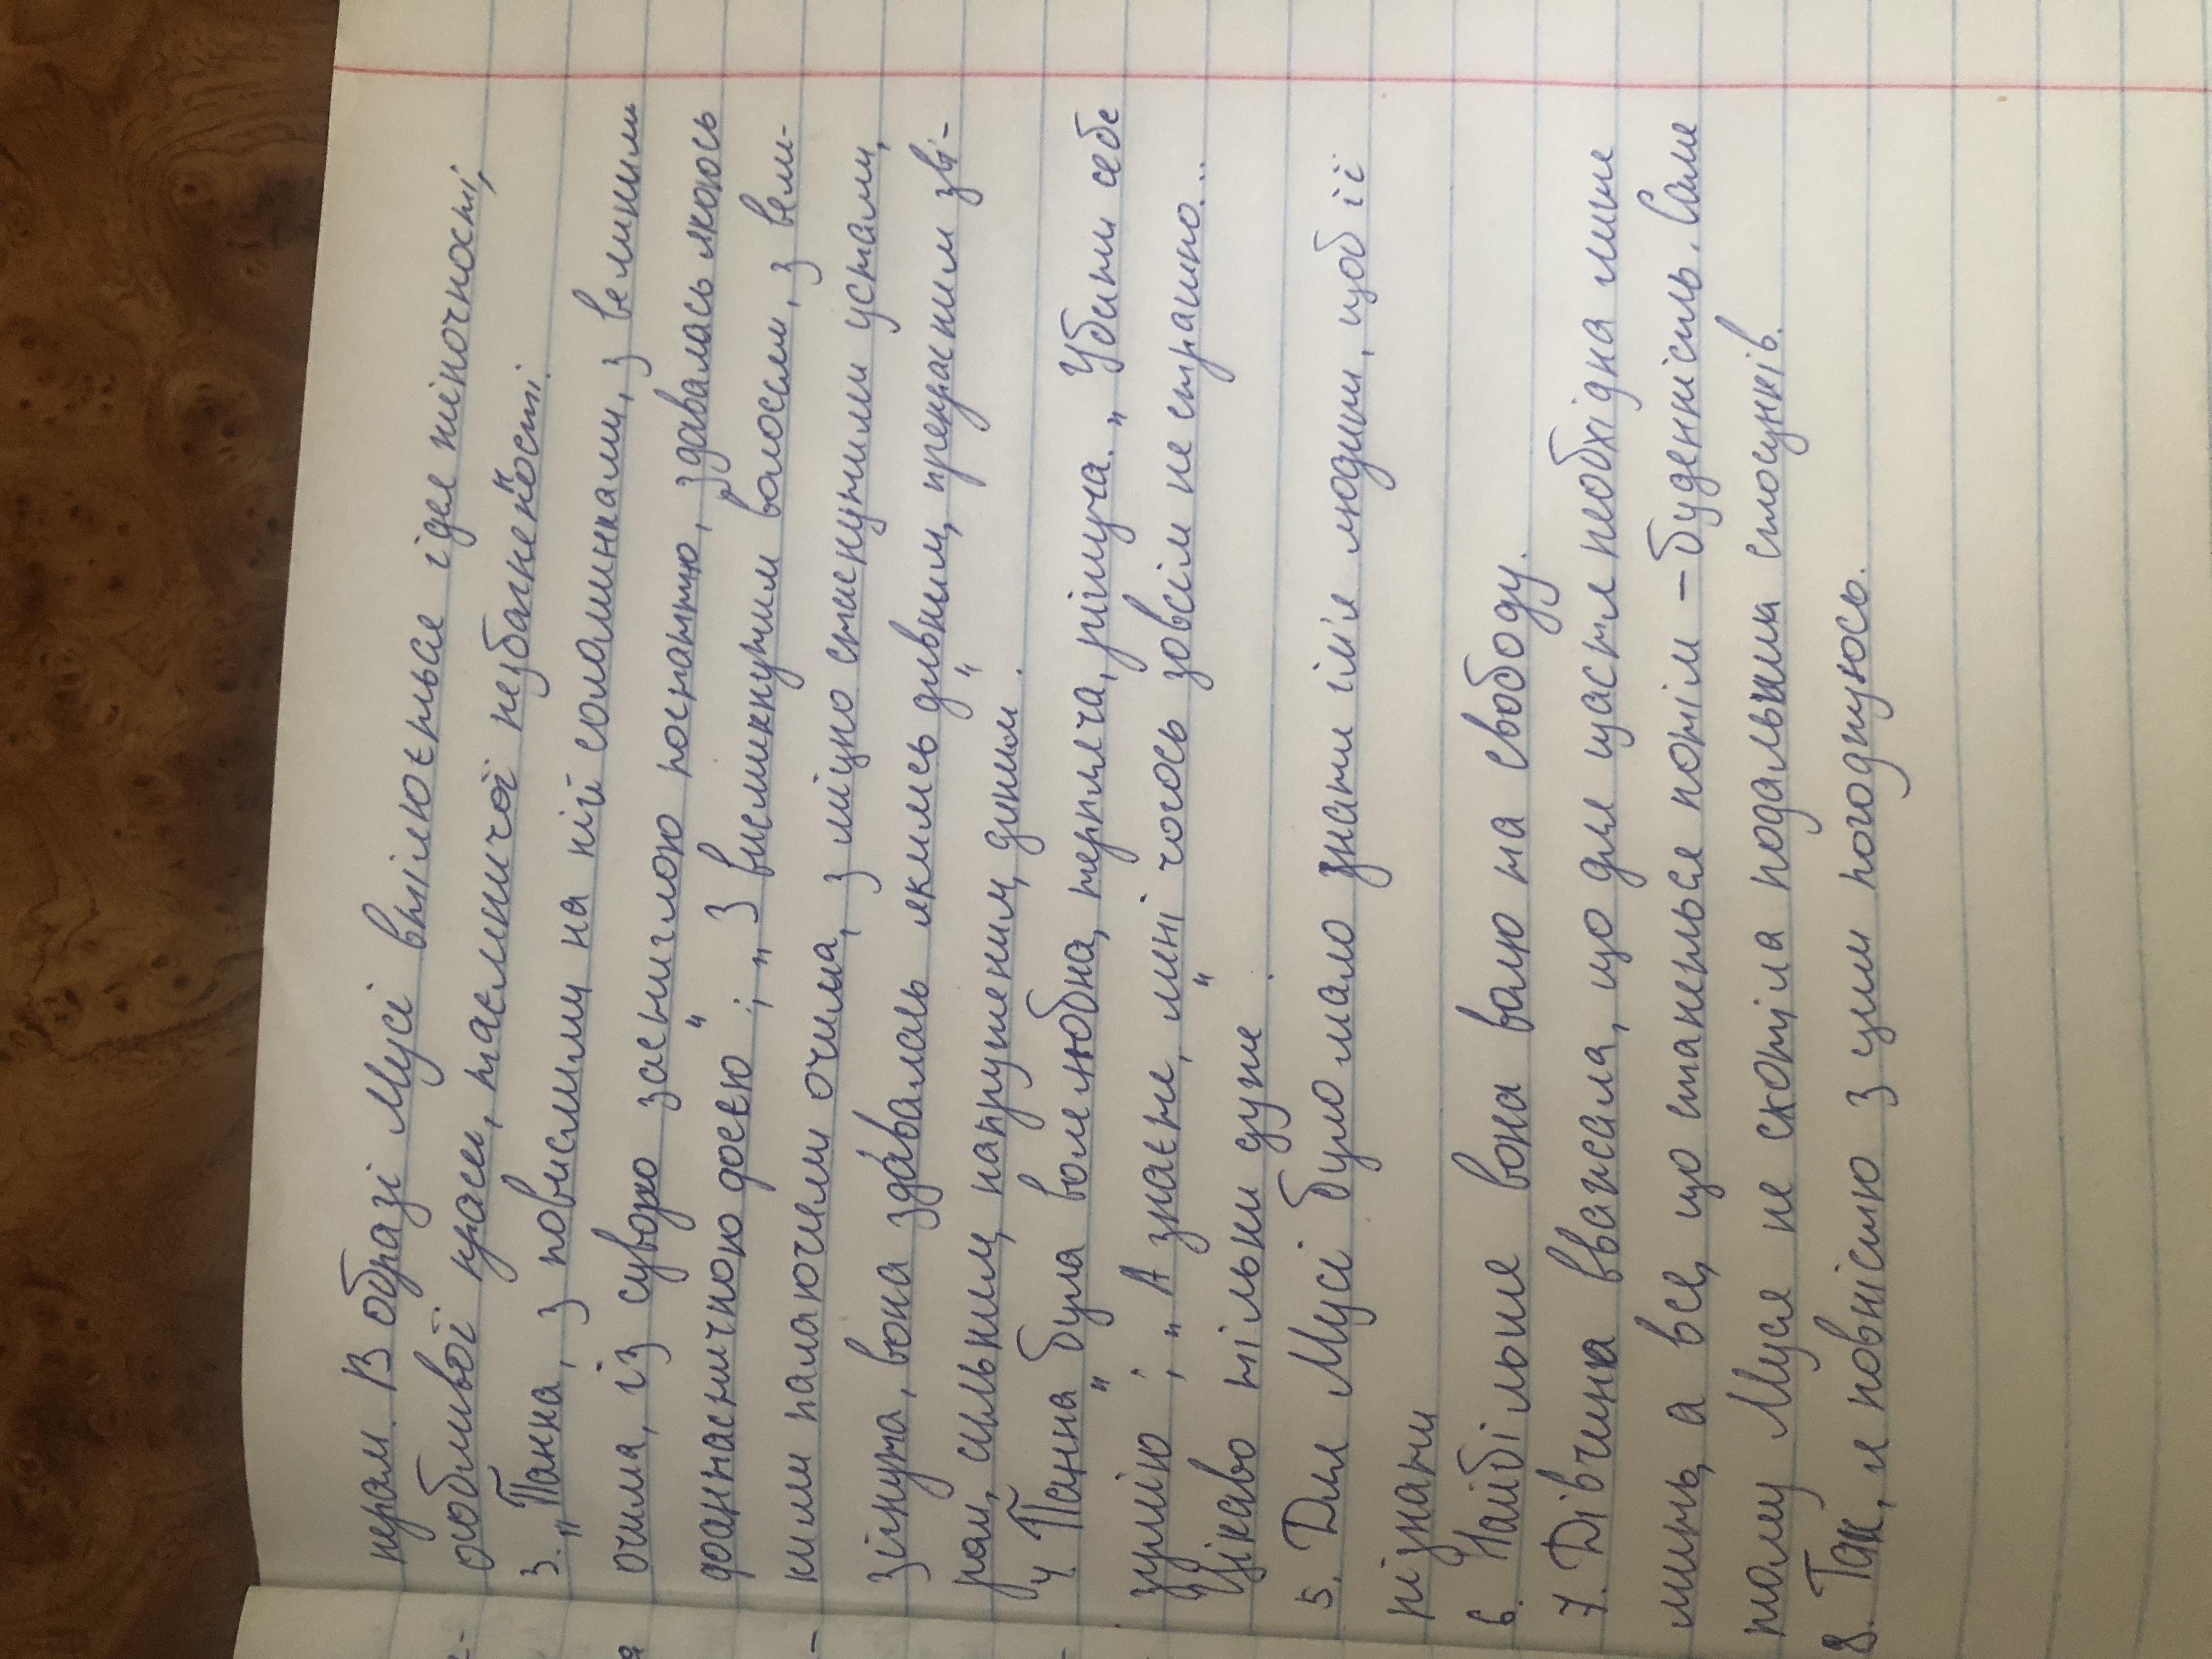 терам. В образі Мусі втілюється ідея жіночності,
особливої краси, таємничої небагненності.
3. „Панна, з повислими на ній соломинками, з великими
очима, із суворо застиглою постаттю, здавалась якоюсь
фантастичною
кими палаючими очима, з міцно стиснутими устами,
зігнута, вона здавалась якимсь дивним, прекрасним зві-
ром, сильним, напруженим, диким".
4. Панна була волелюбна, терпляча, рішуча. „Убити себе
зумію"; „А знаєте, мині чогось зовсім не страшно...
Цікаво тільки дуже".
5. Для Мусі було мало знати ім'я людини, щоб її
пізнати
6. Найбільше вона важо на свободу.
7. Дівчина вважала, що для щастя необхідна лише
мить, а все, що станеться потім – буденність. Саме
тому Муся не схотіла подальших стосунків.
8. Так, я повністю з цим погоджуюсь.